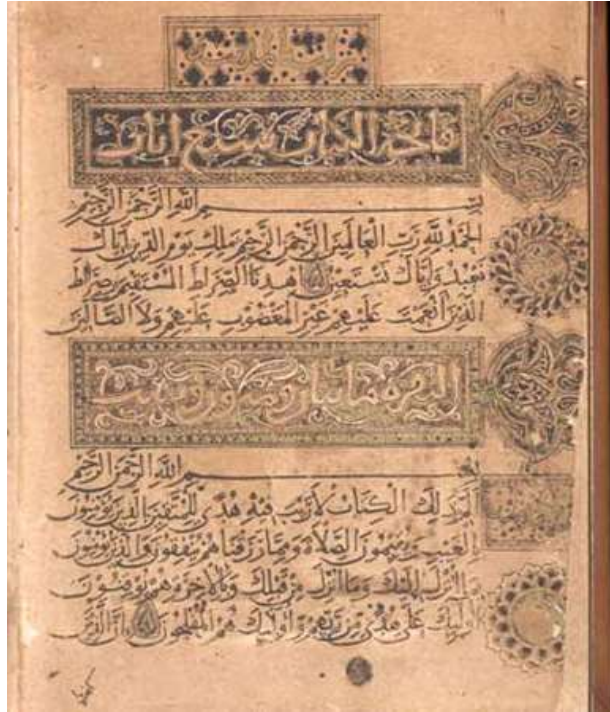 فاتحة الكتاب سبع ايات
بسم الله الرَّحْمَنِ الرَّحِيمِ
الحَمْدُ لِلَّهِ رَبِّ الْعَالَمِينَ الرَّحْمَنِ الرَّحِيمِ مَلِكِ يَوْمِ الدِّينِ اِيَّاكَ
نَعْبُدُ وَاِيَّاكَ نَسْتَعِينُ اهْدِنَا الصِّرَاطَ الْمُسْتَقِيمَ صِرَاطَ
الَّذِينَ اَنْعَمْتَ عَلَيْهِمْ غَيْرِ الْمَغْضُوبِ عَلَيْهِمْ وَلَا الضَّالِّينَ
البقرة مايتان
بسم الله الرَّحْمَنِ الرَّحِيمِ
الم ذَلِكَ الْكِتَابُ لَا رَيْبَ فِيهِ هُدًى لِلْمُتَّقِينَ الَّذِينَ يُؤْمِنُونَ
بِالْغَيْبِ وَيُقِيمُونَ الصَّلَاةَ وَمِمَّا رَزَقْنَاهُمْ يُنْفِقُونَ وَالَّذِينَ يُؤْمِنُونَ
بِمَا اُنْزِلَ اِلَيْكَ وَمَا اُنْزِلَ مِنْ قَبْلِكَ وَبِالْاخِرَةِ هُمْ يُوقِنُونَ
اُولَئِكَ عَلَى هُدًى مِنْ رَبِّهِمْ وَاُولَئِكَ هُمُ الْمُفْلِحُونَ اِنَّ الَّذِينَ